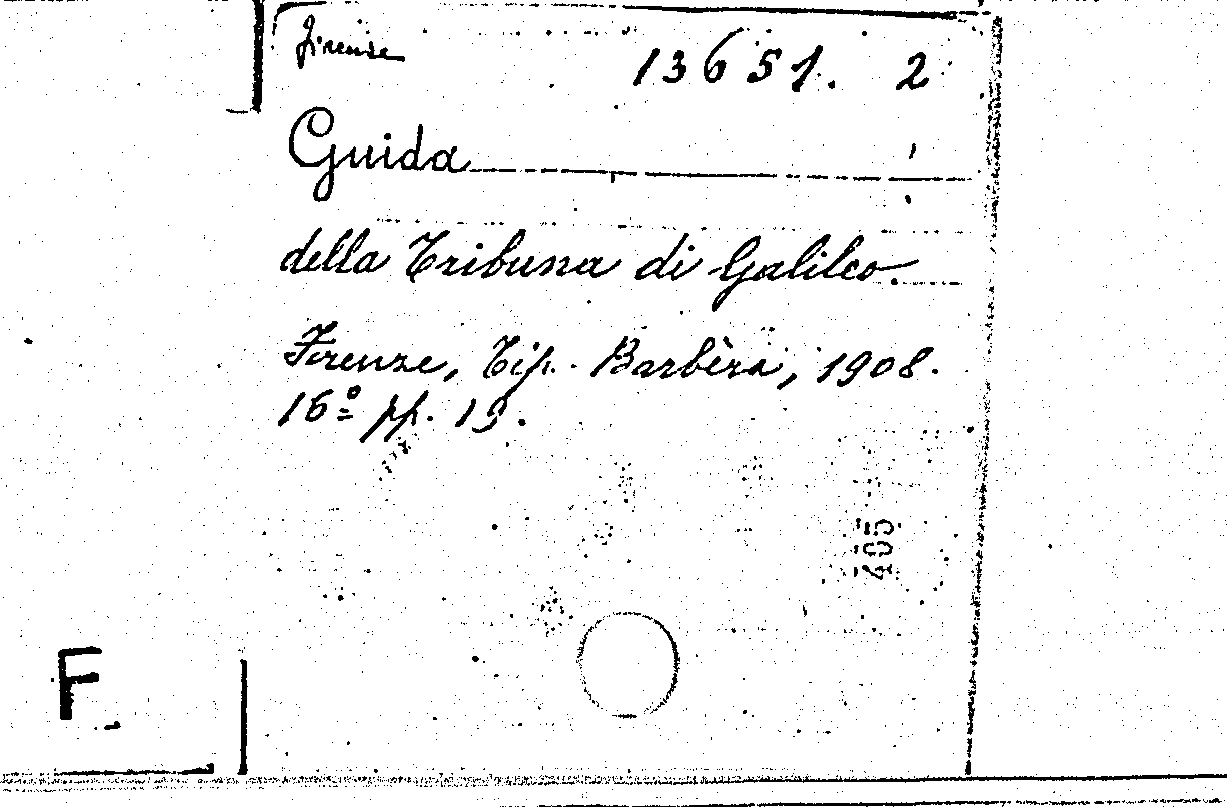 Firenze 13651. 2
Guida
della Tribuna di Galileo.
Firenze, Tip. Barbèra, 1908.
16º pp. 19.
405
F